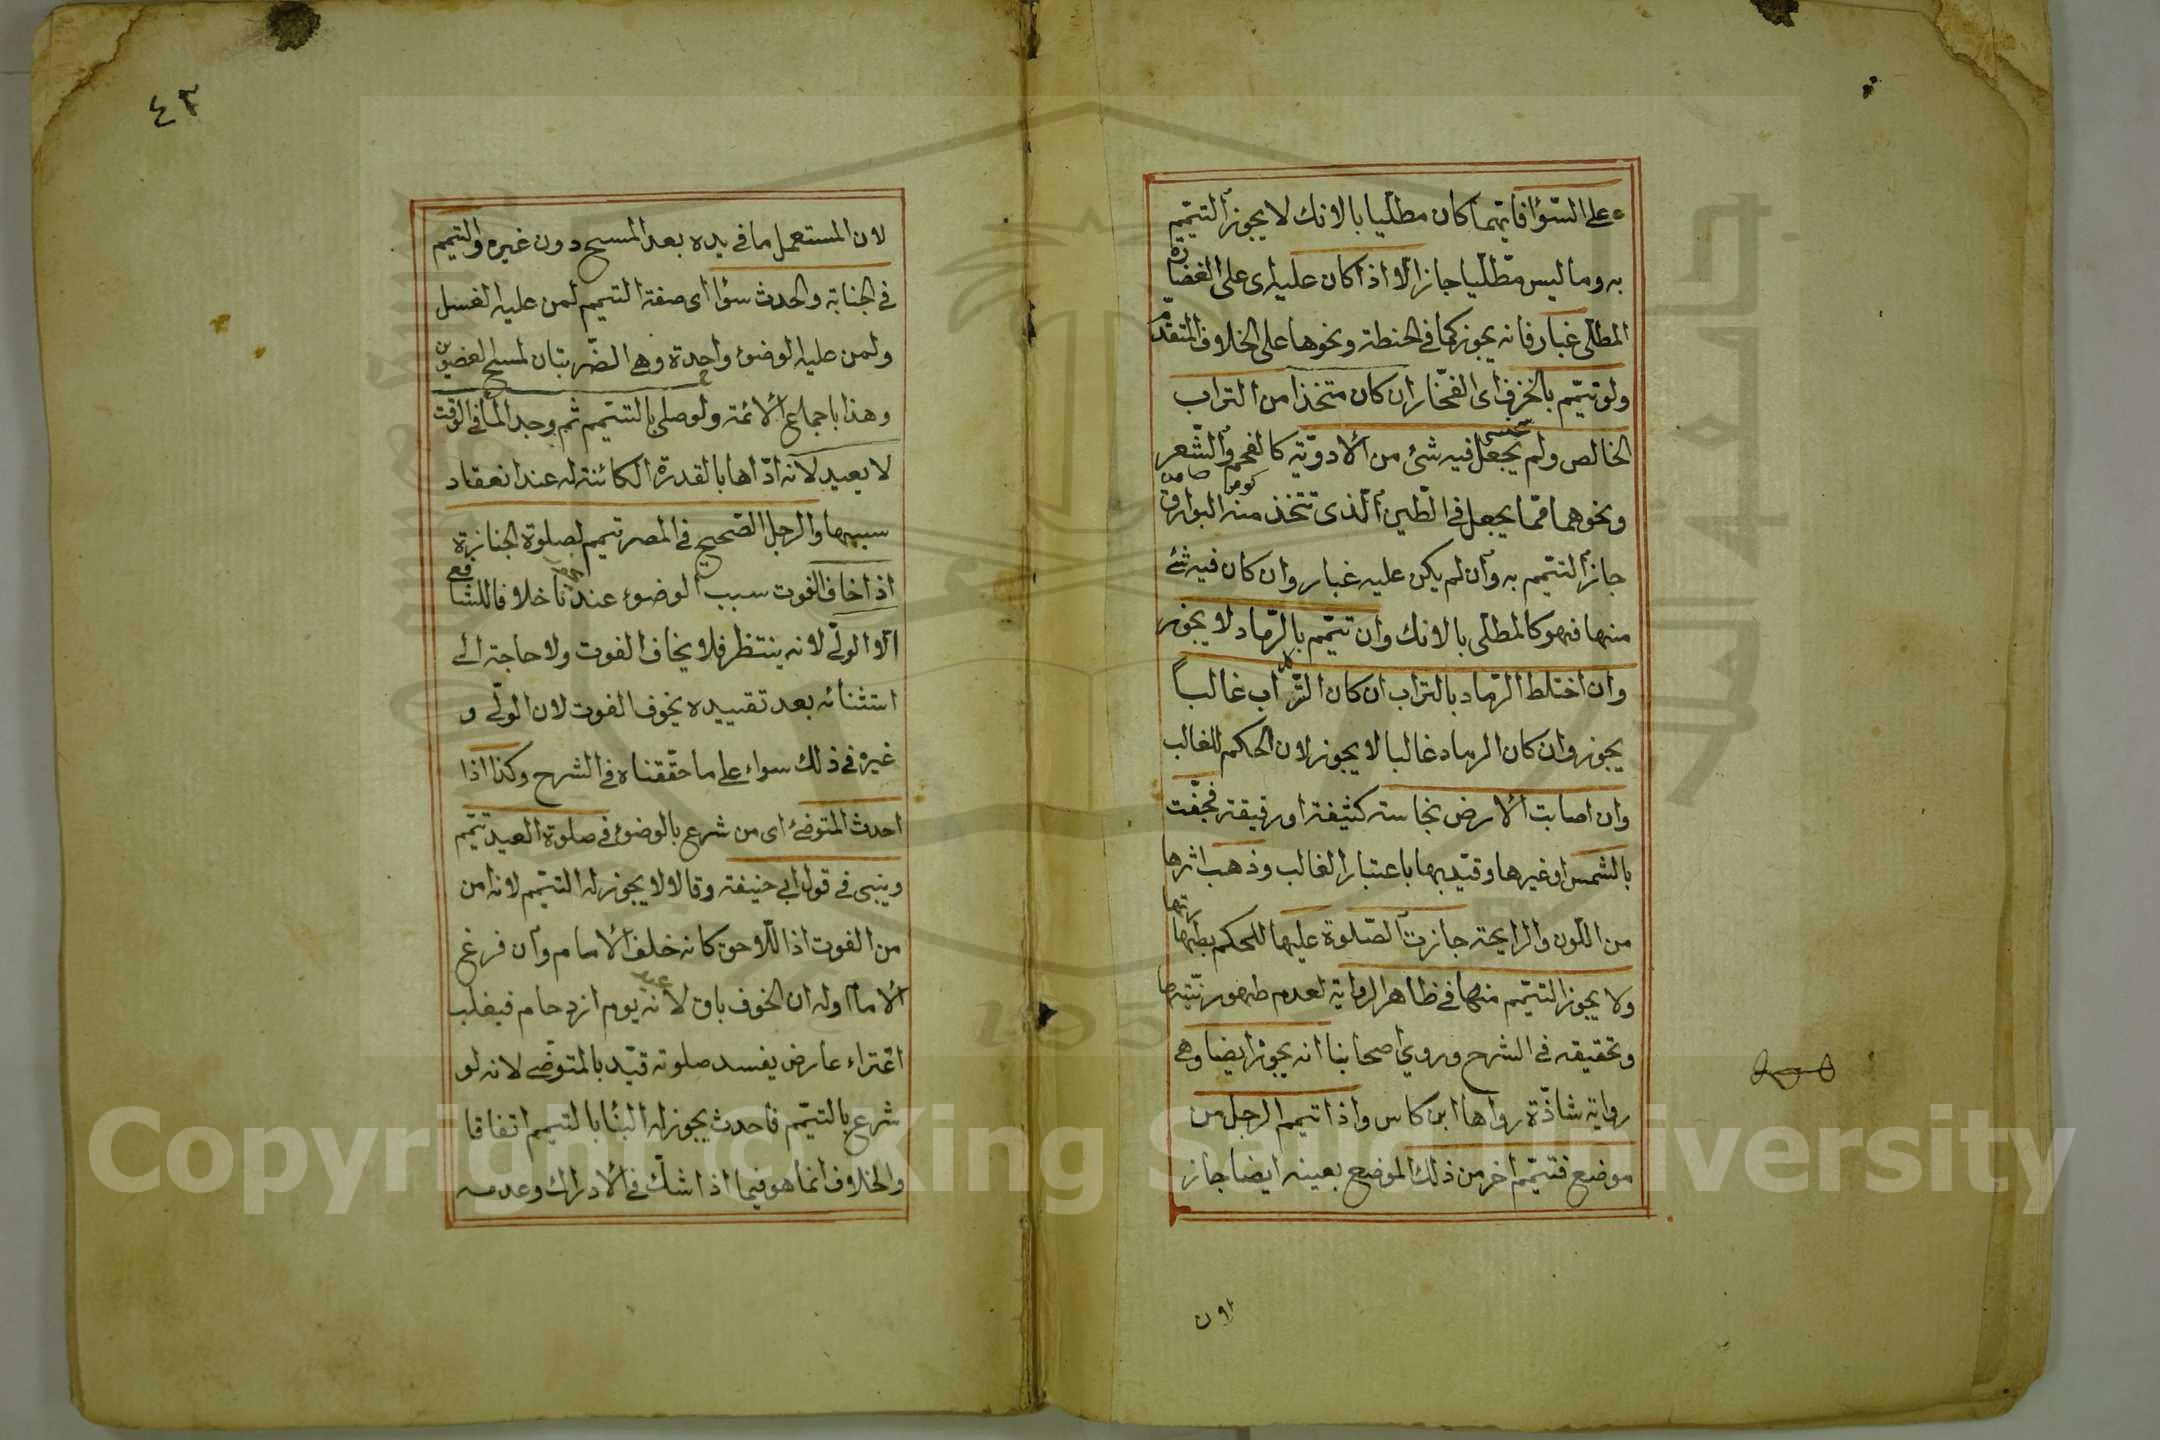 ء على السّوٰا فايتهما كان مطليا بالانك لا يجوز التيمّم
به وما ليس مطّليا جاز الا اذا كان عليه اى على الغضارة
المطلّى غبار فانه يجوز كما فى الحنطة ونحوها على الخلاف المتقدم
ولو تيمّم بالخزف اى الفخّار ان كان متخذا من التراب
الخالص ولم يجعل فيه شئ من الادويّة كالفحم والشّعر
ونحوهما ممّا يجعل فى الطّين الّذى تتخذ منه البوارق
جاز التيمّم به وان لم يكن عليه غبار وان كان فيه شئ
منها فهو كالمطلى بالانك وان تيمّم بالرّماد لا يجوز
وان اختلط الرّماد بالتراب ان كان التّراب غالباً
يجوز وان كان الرماد غالبا لا يجوز لان الحكم للغالب
وان اصابت الارض نجاسة كثيفة او رقيقة فجفّت
بالشمس او غيرها وقيّد بها باعتبار الغالب وذهب اثرها
من اللّون والرايحة جازت الصّلوة عليها للحكم بطهارتها
ولا يجوز التيمّم منها فى ظاهر الرواية لعدم طهوريّتها
وتحقيقه فى الشرح وروى اصحابنا انه يجوز ايضا وهى
رواية شاذّة رواها ابن كاس واذا تيمم الرجل من
موضع فتيمّم اخر من ذلك الموضع بعينه ايضا جاز
لان
٤٣
لان المستعمل ما فى يده بعد المسح دون غيره والتيمم
فى الجنابة والحدث سوٰا اى صفة التيمم لمن عليه الغسل
ولمن عليه الوضوء واحدة وهى الضّربتان لمسح العضوين
وهذا باجماع الائمة ولو صلى بالتيمّم ثم وجد المأ فى الوقت
لا يعيد لانه ادّاها بالقدرة الكائنة له عند انعقاد
سببها والرجل الصّحيح فى المصر تيمم لصلوة الجنازة
اذا خاف الفوت سبب الوضوء عندنا خلافا للشافعى
الا الولّى لانه ينتظر فلا يخاف الفوت ولا حاجة الى
استثنائه بعد تقييده بخوف الفوت لان الولّى و
غيره فى ذلك سواء على ما حقّقناه فى الشرح وكذا اذا
احدث المتوضئ اى من شرع بالوضوء فى صلوة العيد تيمّم
ويبنى فى قول ابى حنيفة وقالا لا يجوز له التيمّم لانه امن
من الفوت اذ اللّاحق كانه خلف الامام وان فرغ
الاماٰ وله ان الخوف باق لانه يوم ازدحام فيغلب
اعتراء عارض يفسد صلوته قيّد بالمتوضّى لانه لو
شرع بالتيمّم فاحدث يجوز له البنا بالتيمم اتفاقا
والخلاف انما هو فيما اذا شكّ فى الادراك وعدمه
Copyright © King Saud University